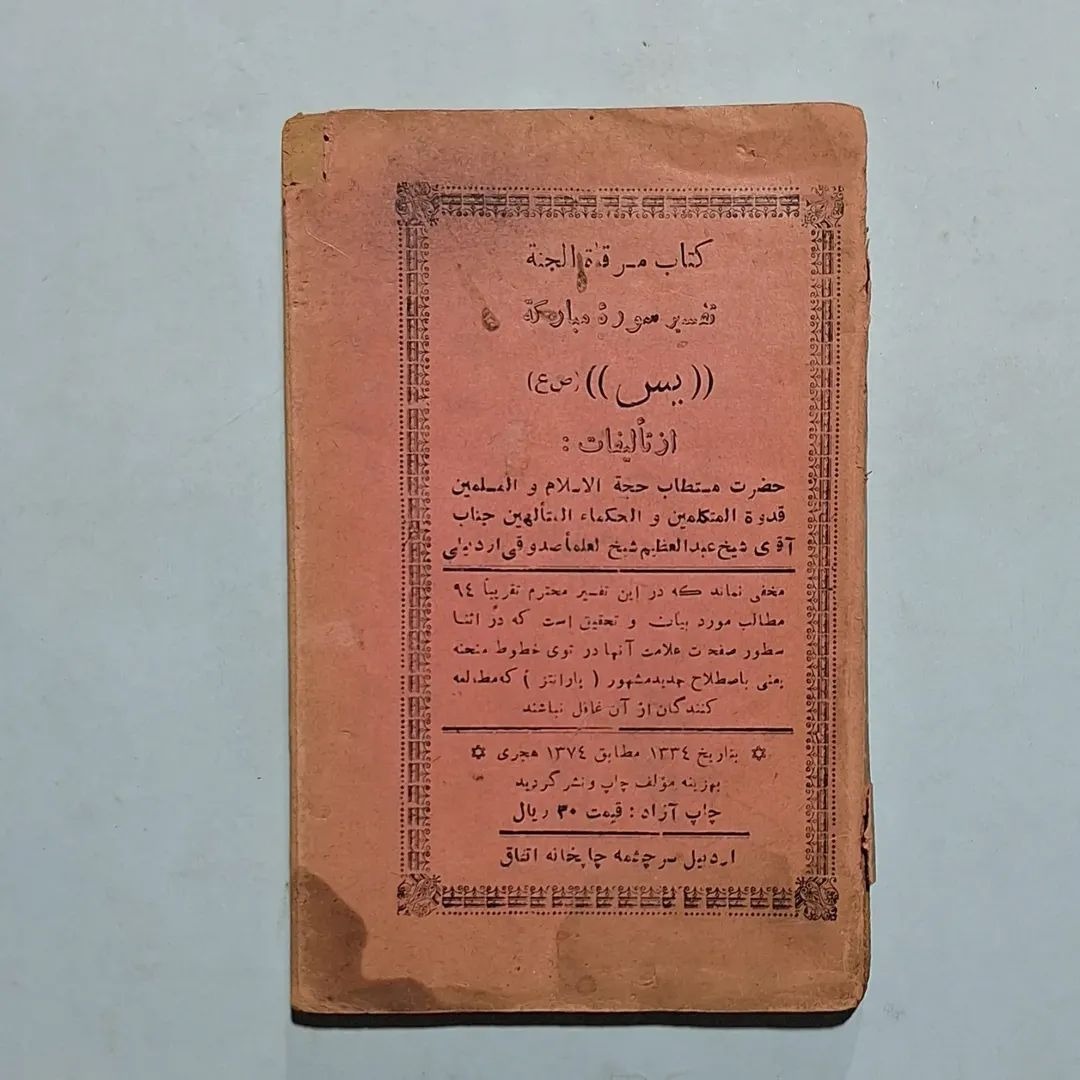 کتاب مرقاة الجنة
تفسیر سورۀ مبارکۀ
((یس)) (ص ع)
از تألیفات :
حضرت مستطاب حجة الاسلام و المسلمین
قدوة المتکلمین و الحکماء المتألهین جناب
آقای شیخ عبدالعظیم شیخ لعلما صدوقی اردبیلی
مخفی نماند که در این تفسیر محترم تقریباً ٩٤
مطالب مورد بیان و تحقیق است که در اثنا
سطور صفحات علامت آنها در توی خطوط منحنه
یعنی باصطلاح جدید مشهور ( پارانتز ) که مطالعه
کنندگان از آن غافل نباشند
بتاریخ ١٣٣٤ مطابق ١٣٧٤ هجری
بهزینه مؤلف چاپ و نشر گردید
چاپ آزاد : قیمت ٣٠ ریال
اردبیل سرچشمه چاپخانه اتفاق